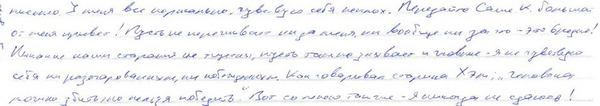 письмо. У меня все нормально, чувствую себя неплохо. Передайте Саше К. большой
от меня привет! Пусть не переживает ни за меня, ни вообще ни за что - это вредно!
наши старания не тщетны, пусть только знает и главное - я не чувствую
себя ни разочарованным, ни побежденным. Как говаривал старина Хэм, "человека
можно убить, но нельзя победить". Вот со мною так же - я никогда не сдаюсь!